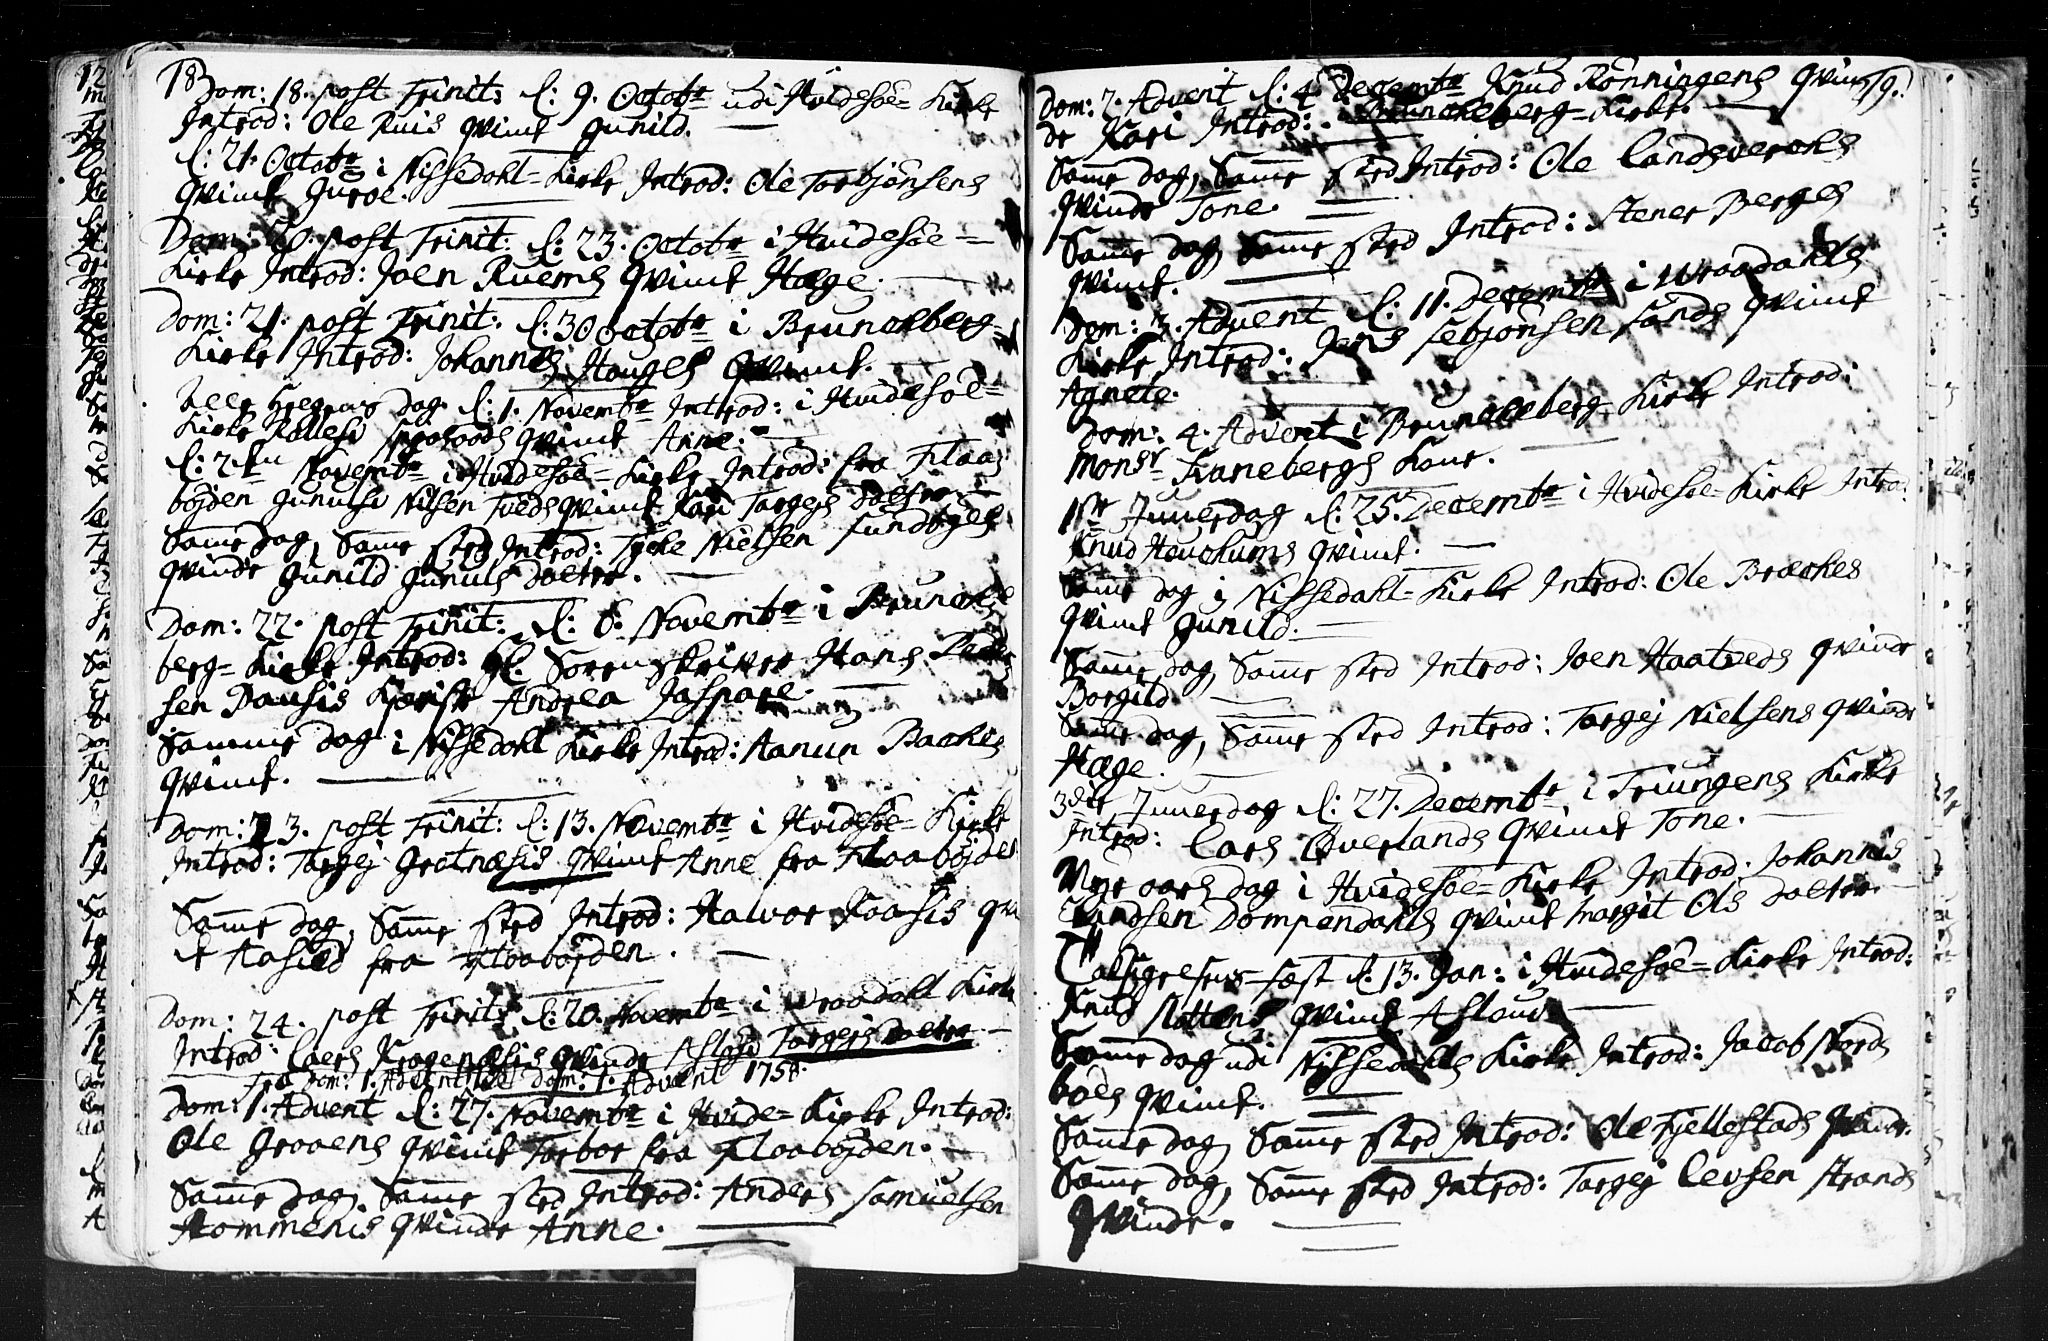 18
Dom: 18. post Trinit: d: 9. Octobr udi Hvidesöe= Kirke
Introd: Ole Ruis Qvinde Gunild.
d: 21. Octobr i Nissedahl=Kirke Introd: Ole Torbjönsens
Qvinde Guroe.
Dom: 20. post Trinit: d: 23. Octobr i Hvidesöe=
Kirke Introd: Joen Ruems Qvinde Hæge.
Dom: 21. post Trinit: d: 30 Octobr i Brunckberg=
Kirke Introd: Johannes Houges Qvinde.
Alle Helgens dag d: 1. Novembr Introd: i Hvidesöe=
Kirke Qvinde Anne.
d: 2den Novembr i Hvidesöe=Kirke Introd: fra Flaa
böjden Gunulf Nilsen Tveds Qvinde Kari Torgejs Dotter
Same dag, Same sted Introd: Tycke Nielsen Sundbyes
Qvinde Gunild Gunuls Dotter.
Dom: 22. post Trinit: d: 6. Novembr i Brunche
berg=Kirke Introd: Hl. Sorenskriver Hans Peder
sen Pausis Kjæriste Andrea Jaspara.
Samme dag i Nissedahl Kirke Introd: Aanun Backes
Qvinde.
Dom: 23. post Trinit: d: 13. Novembr i Hvidesöe=Kirke
Introd: Torgej Grotnæsis Qvinde Anne fra Flaaböjden
Same dag, Same sted Introd: Halvor Qvin
de Aasild fra Flaaböjden.
Dom: 24. post Trinit: d: 20. Novembr i Wraadahl Kirke
Introd: Laers Kragenæsis Qvinde Asloug Torgejs Dotter
Fra Dom: 1. Advent til Dom: 1. Advent 1758.
Dom: 1. Advent d: 27. Novembr i Hvide=Kirke Introd:
Ole Groaens Qvinde Torbor fra Flaaböjden.
Same dag, Same sted Introd: Anders Samuelsen
Hommenis Qvinde Anne.
19.
Dom: 2. Advent d: 4. Decembr Knud Rönningens Qvin
de Kari Introd: i Brunckeberg=Kirke.
Same dag, Same sted Introd: Ole Landsvercks
Qvinde Tone.
Same dag, Same sted Introd: Stener Berges
Qvinde.
Dom: 3. Advent d: 11. Decembr i Wraadahls
Kirke Introd: Jens Lebjönsen Sands Qvinde
Agnete.
Dom: 4. Advent i Brunckeberg Kirke Introd:
Monsr Kone.
1ste Juuledag d: 25. Decembr i Hvidesöe=Kirke Introd:
Knud Hauchums Qvinde.
Same dag i Nissedahl=Kirke Introd: Ole Bræckes
Qvinde Gunild.
Same dag, Same sted Introd: Joen Haatveds Qvinde
Borgild
Same dag, Same sted Introd: Torgej Nielsens Qvinde
Hæge.
3die Juuledag d: 27. Decembr i Triungens Kirke
Introd: Lars Överlands Qvinde Tone.
Nye aars dag i Hvidesöe=Kirke Introd: Johannis
Dompendahls Qvinde Margit Ols Dotter.
d: 13. Jan: i Hvidesöe=Kirke Introd:
Knud Slottens Qvinde Asloug
Same dag udi Nissedahls Kirke Introd: Jacob Nords
boes Qvinde.
Same dag, Same sted Introd: Ole Fjellestads Qvinde.
Same dag, Same sted Introd: Torgej Levsen Strands
Qvinde.